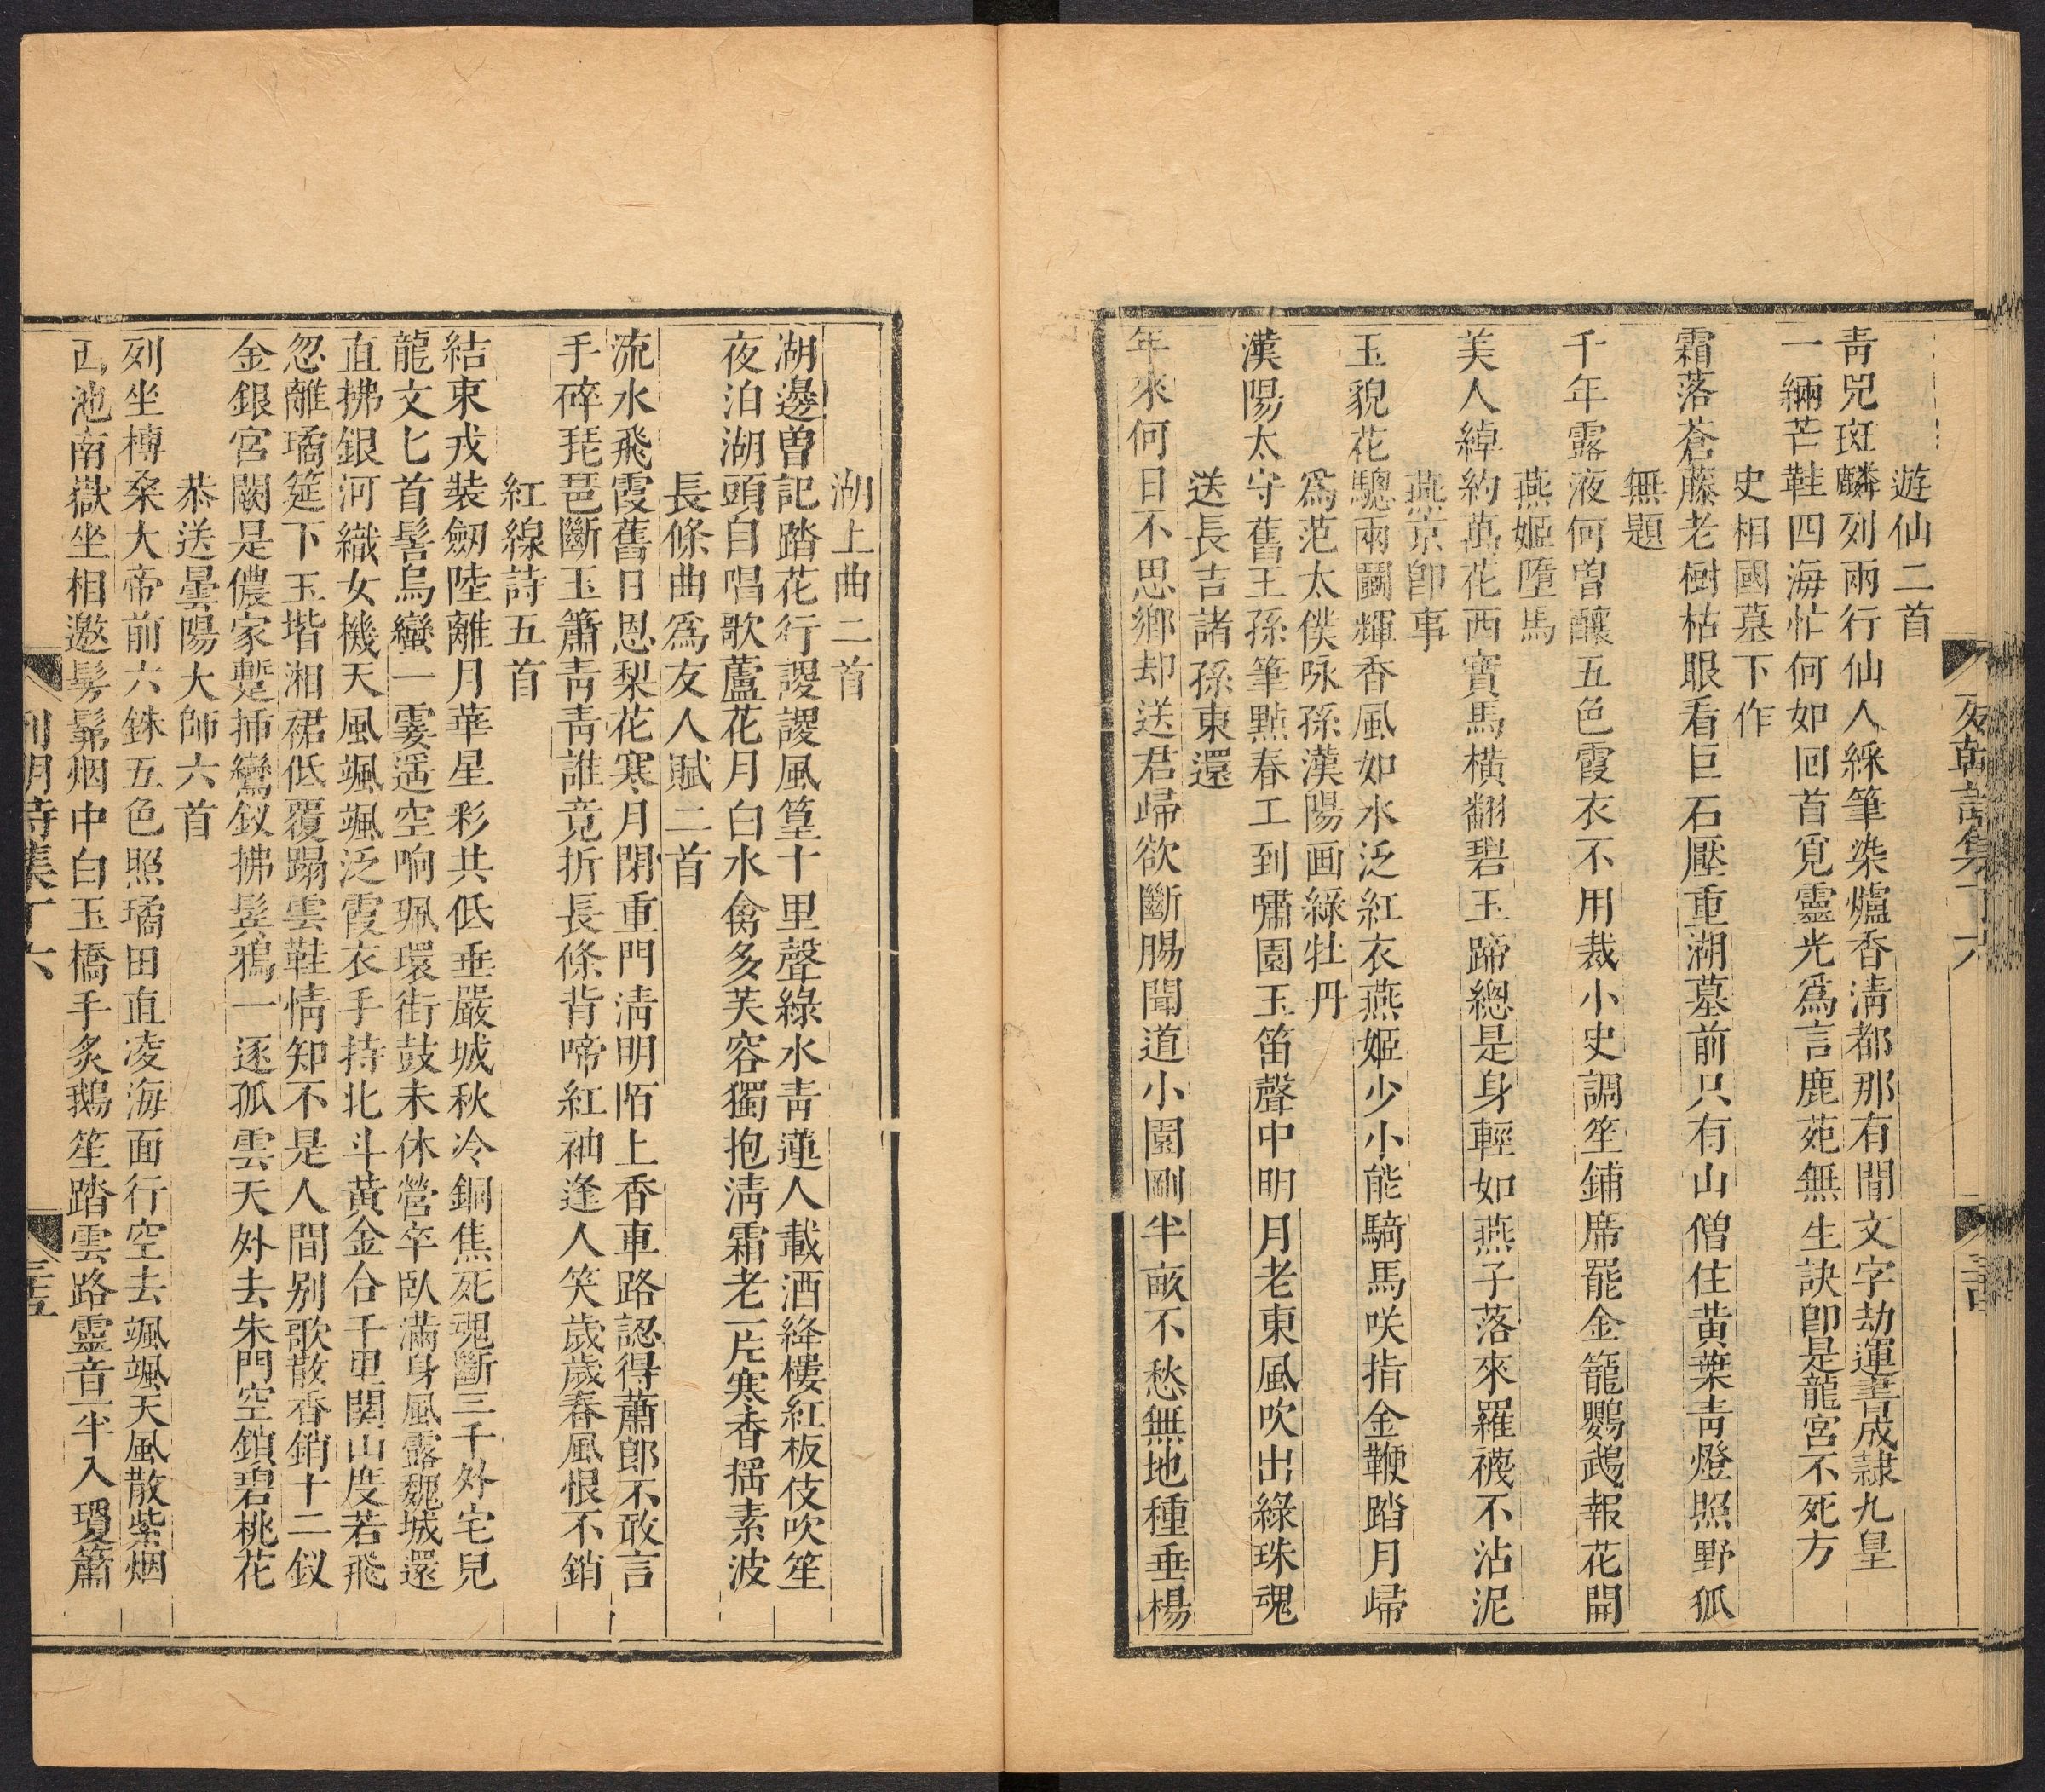 遊仙二首
青兕斑麟列兩行仙人綵筆染爐香清都那有閒文字劫運書成隷九皇
一緉芒鞋四海忙何如回首覓靈光爲言鹿苑無生訣卽是龍宮不死方
史相國墓下作
霜落蒼藤老樹枯眼看巨石壓重湖墓前只有山僧住黄葉青燈照野狐
無題
千年露液何曽釀五色霞衣不用裁小史調笙鋪席罷金籠鸚鵡報花開
燕姬墮馬
美人綽約萬花西寶馬橫翻碧玉蹄總是身輕如燕子落來羅襪不沾泥
燕京卽事
玉貌花驄兩鬬輝香風如水泛紅衣燕姬少小能騎馬咲指金鞭踏月歸
爲范太僕咏孫漢陽画綠牡丹
漢陽太守舊王孫筆點春工到嘯園玉笛聲中明月老東風吹出綠珠魂
送長吉諸孫東還
年來何日不思鄉却送君歸欲斷腸聞道小園剛半畝不愁無地種垂楊
湖上曲二首
湖邊曽記踏花行謖謖風篁十里聲綠水青蓮人載酒絳樓紅板伎吹笙
夜泊湖頭自唱歌蘆花月白水禽多芙容獨抱清霜老一片寒香摇素波
長條曲爲友人賦二首
流水飛霞舊日恩梨花寒月閉重門清明陌上香車路認得蕭郎不敢言
手碎琵琶斷玉簫青青誰竟折長條背啼紅袖逢人笑歲歲春風恨不銷
紅線詩五首
結束戎裝劒陸離月華星彩共低垂嚴城秋冷銅焦死魂斷三千外宅兒
龍文匕首髻烏蠻一霎遥空响珮環街鼓未休營卒臥滿身風露魏城還
直拂銀河織女機天風颯颯泛霞衣手持北斗黄金合千里關山度若飛
忽離璚筵下玉堦湘裙低覆蹋雲鞋情知不是人間别歌散香銷十二釵
金銀宮闕是儂家蹔揷鸞釵拂鬂鴉一逐孤雲天外去朱門空鎖碧桃花
恭送曇陽大師六首
列坐榑桑大帝前六銖五色照璚田直凌海面行空去颯颯天風散紫烟
西池南嶽坐相邀髣髴烟中白玉橋手炙鵝笙踏雲路靈音一半入瓊簫
列朝詩集丁六